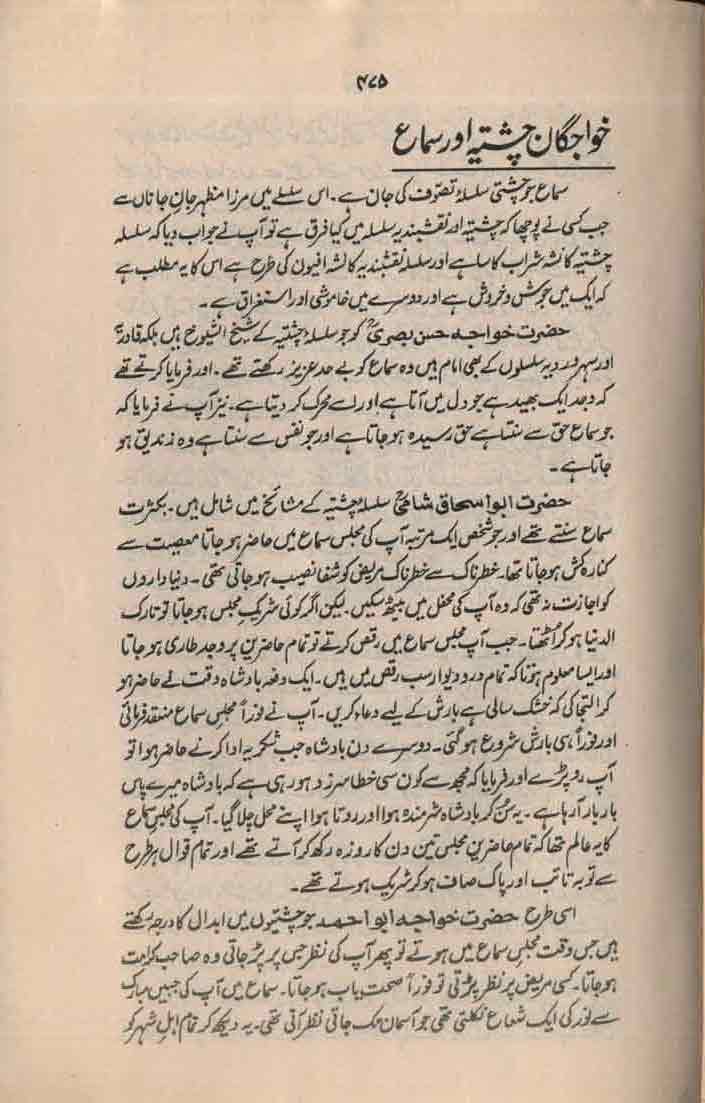 ۴۷۵
خواجگان چشتیہ اور سماع
سماع جو چشتی سلسلۂ تصوّف کی جان ہے۔ اس سلسلے میں مرزا مظہر جانِ جاناں سے
جب کسی نے پوچھا کہ چشتیہ اور نقشبندیہ سلسلہ میں کیا فرق ہے تو آپ نے جواب دیا کہ سلسلہ
چشتیہ کا نشہ شراب کا سا ہے اور سلسلہ نقشبندیہ کا نشہ افیون کی طرح ہے اس کا یہ مطلب ہے
کہ ایک میں جوش و خروش ہے اور دوسرے میں خاموشی اور استغراق ہے۔
حضرت خواجہ حسن بصریؒ کو جو سلسلۂ چشتیہ کے شیخ الشیوخ ہیں بلکہ قادریہ
اور سہروردیہ سلسلوں کے بھی امام ہیں وہ سماع کو بے حد عزیز رکھتے تھے۔ اور فرمایا کرتے تھے
کہ وجد ایک بھید ہے جو دل میں آتا ہے اور اسے محرک کر دیتا ہے۔ نیز آپ نے فرمایا کہ
جو سماع حق سے سنتا ہے حق رسیدہ ہو جاتا ہے اور جو نفس سے سنتا ہے وہ زندیق ہو
جاتا ہے۔
حضرت ابو اسحاق شامیؒ سلسلۂ چشتیہ کے مشائخ میں شامل ہیں۔ بکثرت
سماع سنتے تھے اور جو شخص ایک مرتبہ آپ کی مجلس سماع میں حاضر ہو جاتا معصیت سے
کنارہ کش ہو جاتا تھا۔ خطرناک سے خطرناک مریض کو شفا نصیب ہو جاتی تھی۔ دنیا داروں
کو اجازت نہ تھی کہ وہ آپ کی محفل میں بیٹھ سکیں۔ لیکن اگر کوئی شریکِ مجلس ہو جاتا تو تارک
الدنیا ہو کر اُٹھتا۔ جب آپ مجلس سماع میں رقص کرتے تو تمام حاضرین پر وجد طاری ہو جاتا
اور ایسا معلوم ہوتا کہ تمام در و دیوار سب رقص میں ہیں۔ ایک دفعہ بادشاہ وقت نے حاضر ہو
کر التجا کی کہ خشک سالی ہے بارش کے لیے دعا کریں۔ آپ نے فوراً مجلسِ سماع منعقد فرمائی
اور فوراً ہی بارش شروع ہو گئی۔ دوسرے دن بادشاہ جب شکریہ ادا کرنے حاضر ہوا تو
آپ رو پڑے اور فرمایا کہ مجھ سے کون سی خطا سرزد ہو رہی ہے کہ بادشاہ میرے پاس
بار بار آ رہا ہے۔ یہ سُن کر بادشاہ شرمندہ ہوا اور روتا ہوا اپنے محل چلا گیا۔ آپ کی مجلسِ سماع
کا یہ عالم تھا کہ تمام حاضرینِ مجلس تین دن کا روزہ رکھ کر آتے تھے اور تمام قوال ہر طرح
سے توبہ تائب اور پاک صاف ہو کر شریک ہوتے تھے۔
اسی طرح حضرت خواجہ ابو احمد جو چشتیوں میں ابدال کا درجہ رکھتے
ہیں جس وقت مجلسِ سماع میں ہوتے تو پھر آپ کی نظر جس پر پڑ جاتی وہ صاحبِ کرامت
ہو جاتا۔ کسی مریض پر نظر پڑتی تو فوراً صحت یاب ہو جاتا۔ سماع میں آپ کی جبیں مبارک
سے نور کی ایک شعاع نکلتی تھی جو آسمان تک جاتی نظر آتی تھی۔ یہ دیکھ کر تمام اہلِ شہر کو